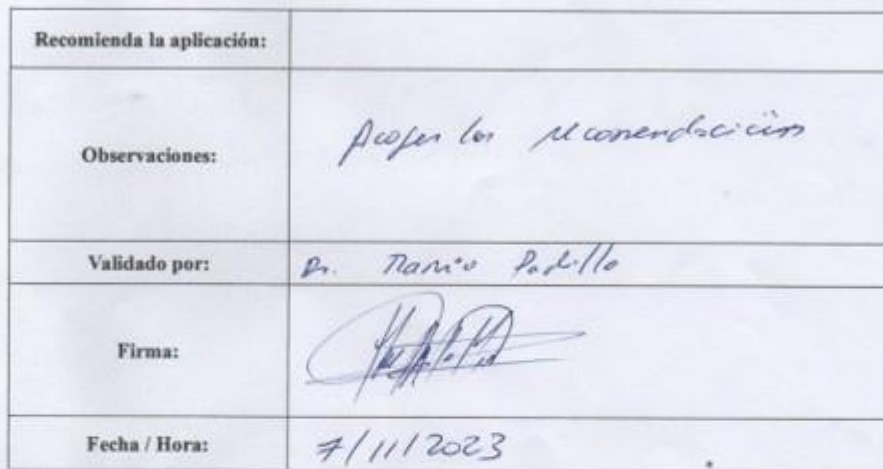 Recomienda la aplicación:
Observaciones: Acoger las recomendaciones
Validado por: Dr. Ramiro Padilla
Firma:
Fecha / Hora: 7/11/2023